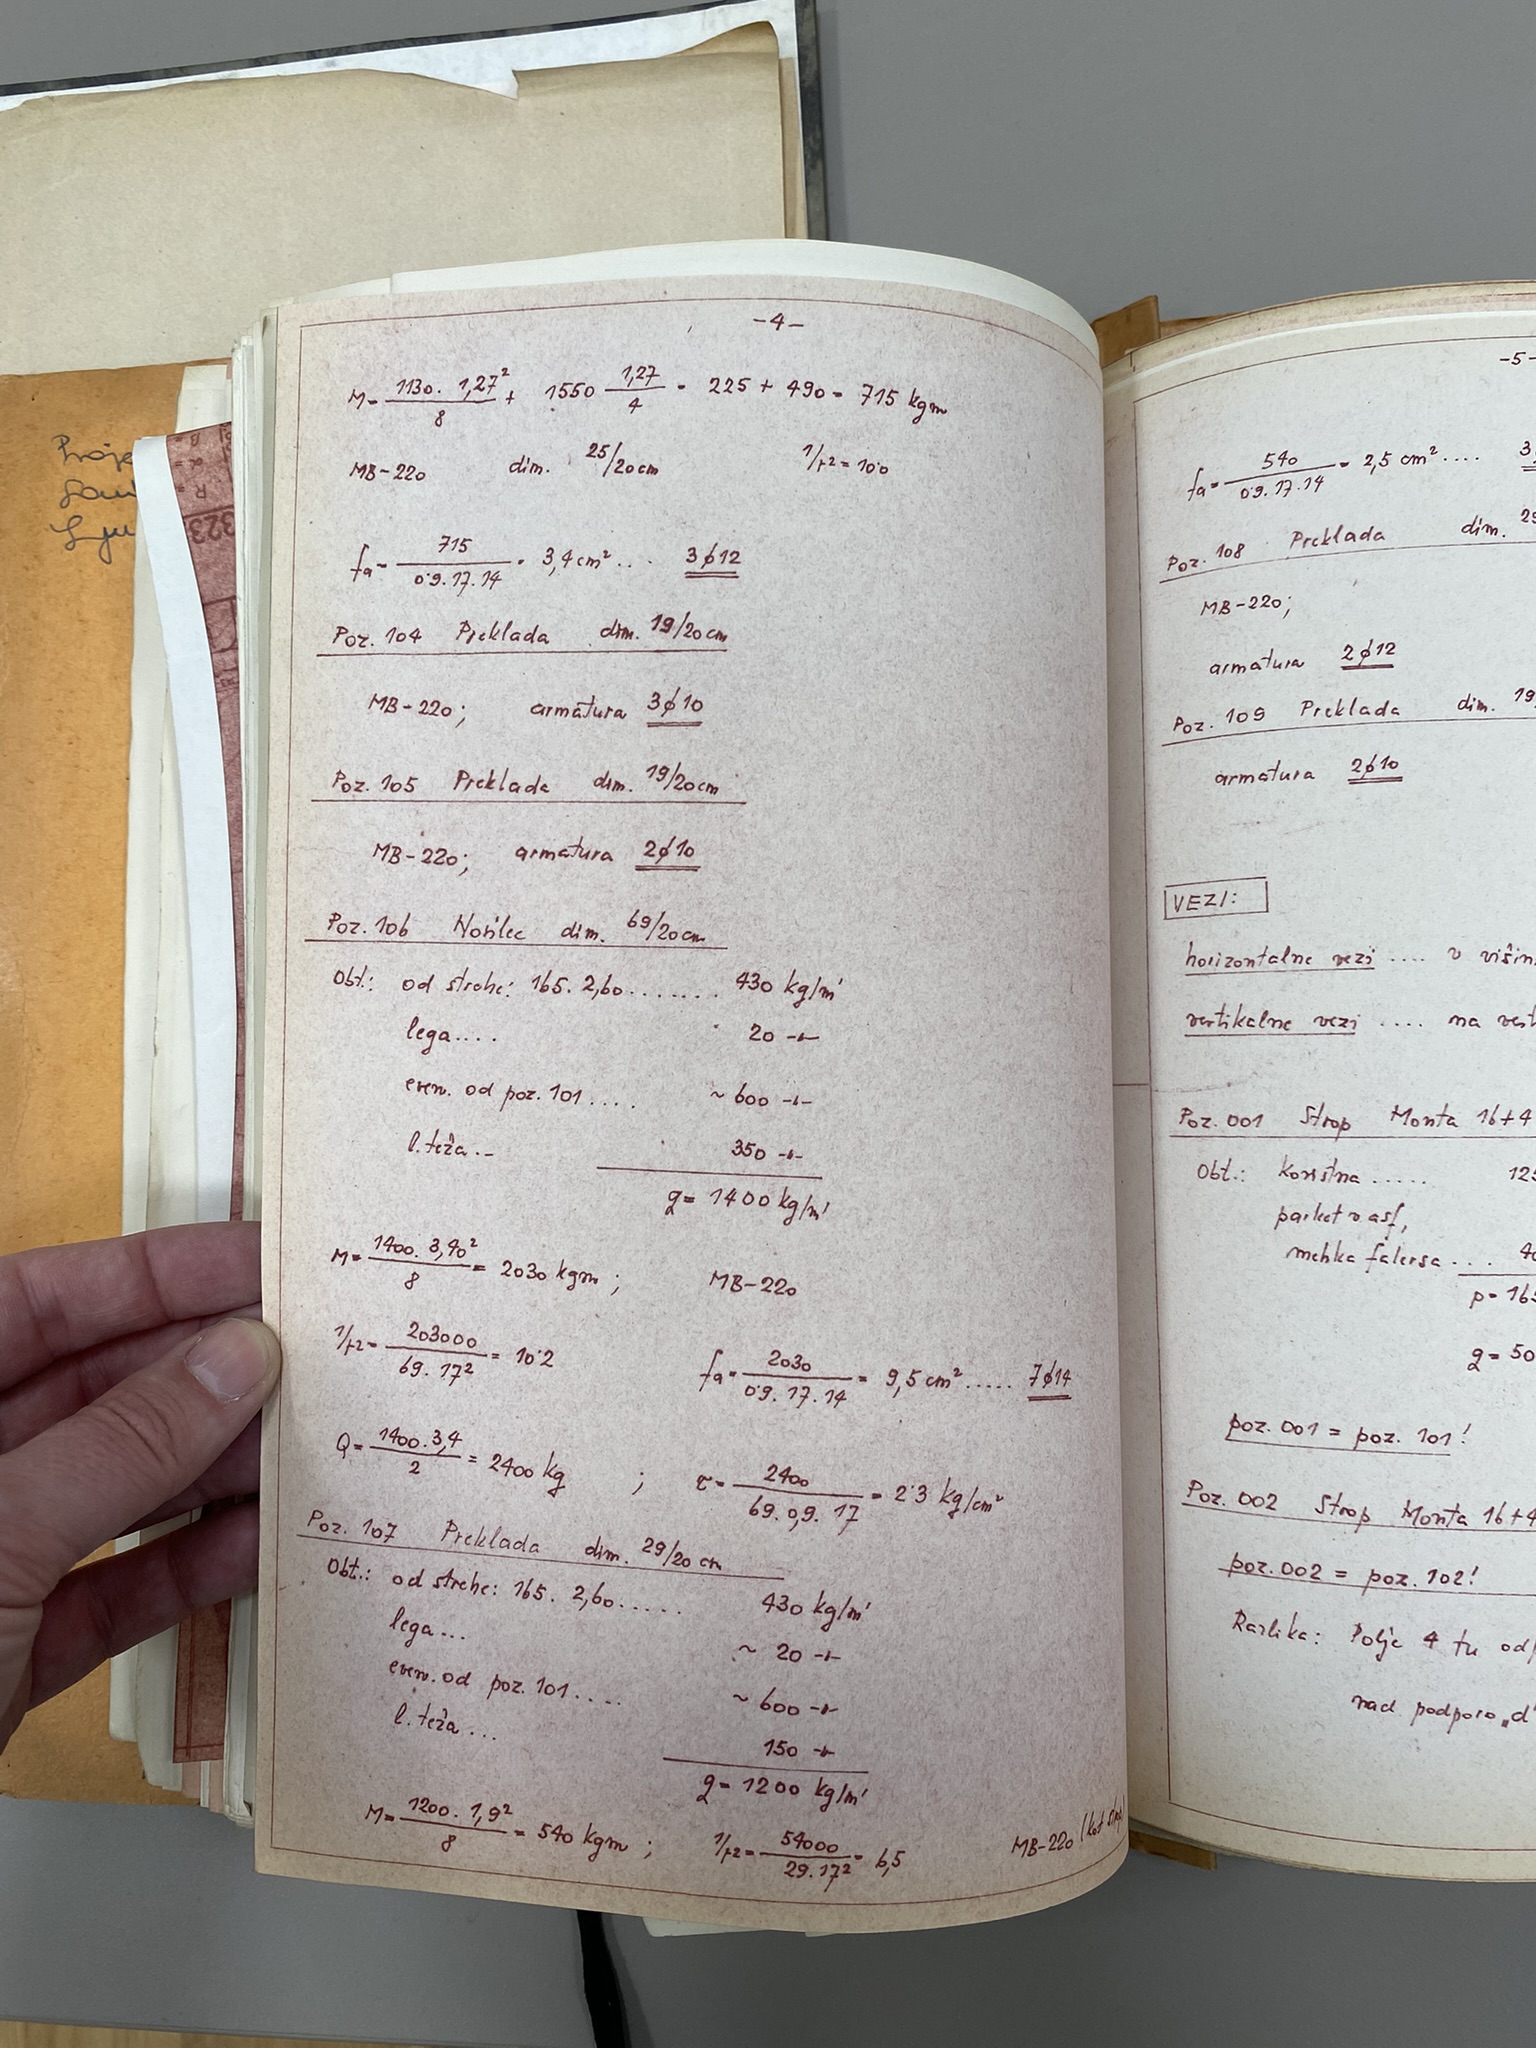 Proje
Lju
323
-4-
M= 1130. 1,27² / 8 + 1550 1,27 / 4 = 225 + 490 = 715 kgm
MB-220 dim. 25/20cm 1/r2 = 10·0
fa= 715 / 0·9.17.14 = 3,4 cm² .... 3ϕ12
Poz. 104 Preklada dim. 19/20cm
MB-220; armatura 3ϕ10
Poz. 105 Preklada dim. 19/20cm
MB-220; armatura 2ϕ10
Poz. 106 Nosilec dim. 69/20cm
Obt.: od strehe: 165. 2,60........ 430 kg/m'
lega.... 20 -"-
even. od poz. 101.... ~ 600 -"-
l. teža .. 350 -"-
g= 1400 kg/m'
M= 1400. 3,40² / 8 = 2030 kgm; MB-220
1/r2= 203000 / 69. 17² = 10·2 fa= 2030 / 0·9. 17. 14 = 9,5 cm² ..... 7ϕ14
Q= 1400. 3,4 / 2 = 2400 kg ; τ= 2400 / 69. 0,9. 17 = 2·3 kg/cm²
Poz. 107 Preklada dim. 29/20 cm
Obt.: od strehe: 165. 2,60..... 430 kg/m'
lega... ~ 20 -"-
even. od poz. 101.... ~ 600 -"-
l. teža ... 150 -"-
g= 1200 kg/m'
M= 1200. 1,9² / 8 = 540 kgm; 1/r2= 54000 / 29. 17² = 6,5 MB-220 (kot
-5-
fa= 540 / 0·9.17.14 = 2,5 cm² .... 3
Poz. 108 Preklada dim. 2
MB-220;
armatura 2ϕ12
Poz. 109 Preklada dim. 19
armatura 2ϕ10
VEZI:
horizontalne vezi .... v višin
vertikalne vezi .... na vert
Poz. 001 Strop Monta 16+4
Obt.: koristna ..... 125
parket v asf,
mehka falersa ... 40
p= 165
g= 50
poz. 001 = poz. 101!
Poz. 002 Strop Monta 16+4
poz. 002 = poz. 102!
Razlika: Polje 4 tu odp
nad podporo „d"